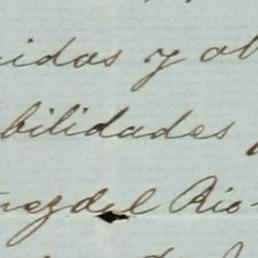 uidas y ob
bilidades
nez del Rio-